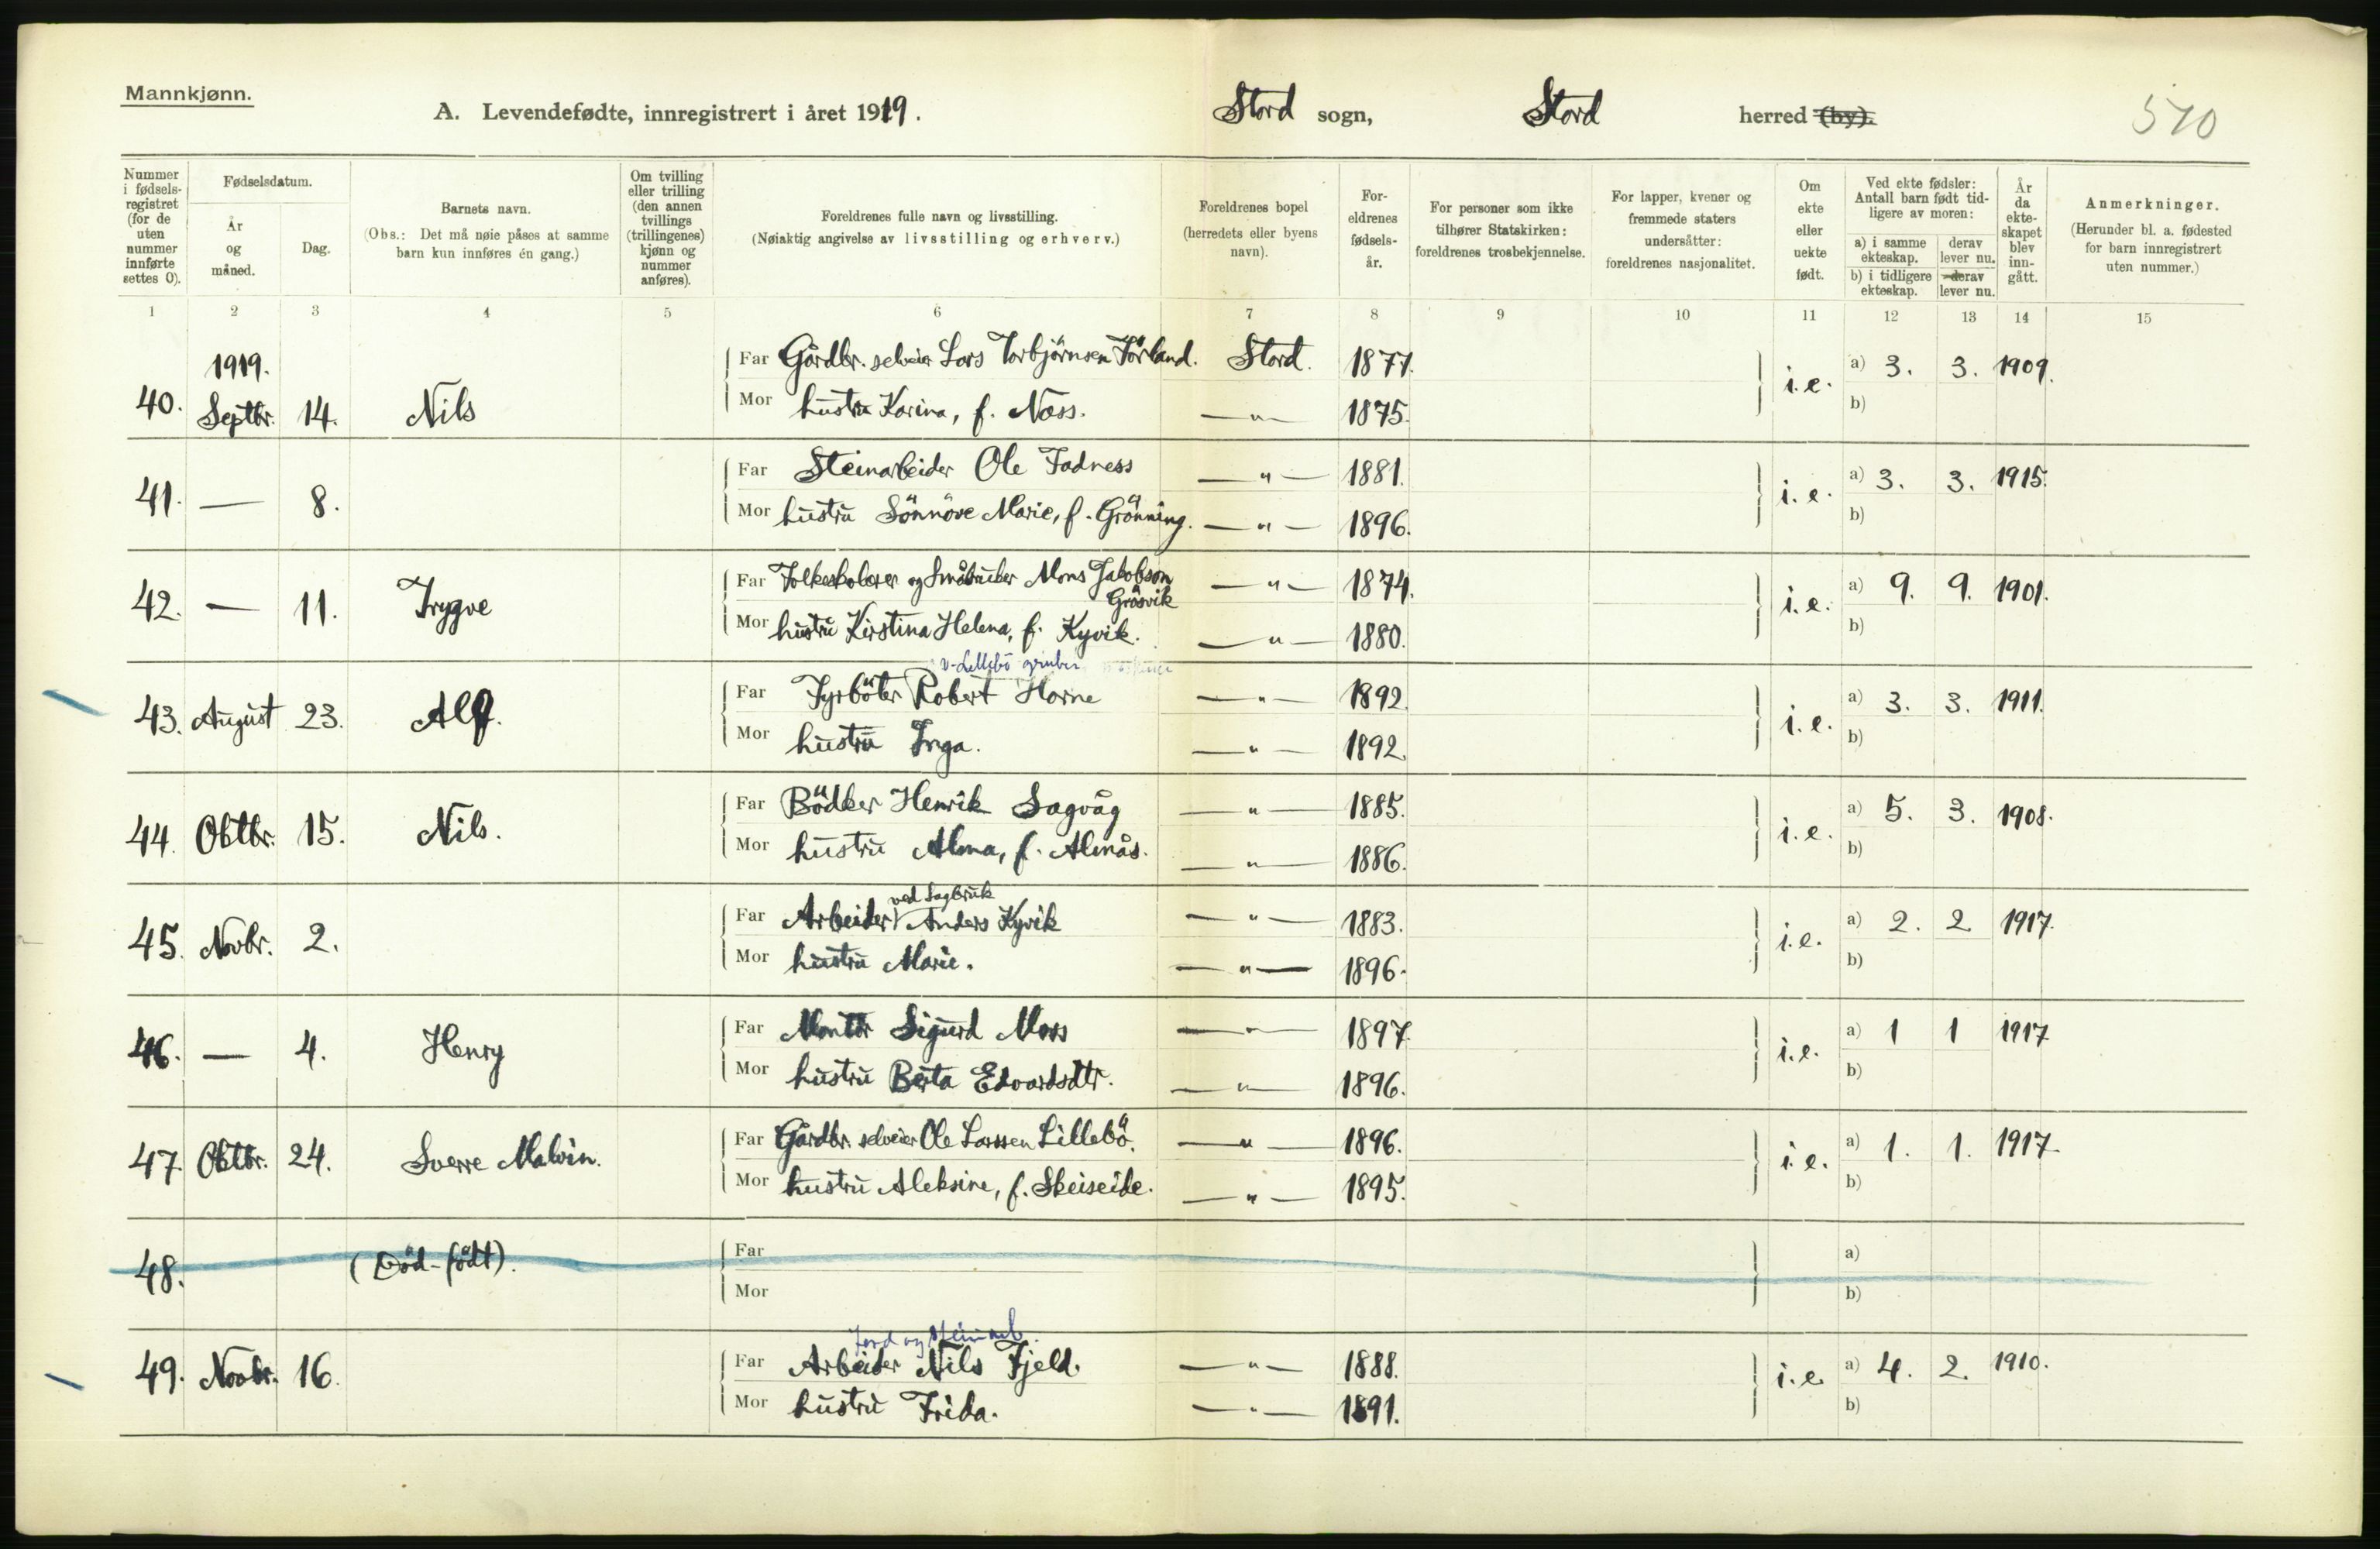 Mannkjønn.
A. Levendefødte, innregistrert i året 1919. Stord sogn, Stord herred (by). 570
Nummer i fødselsregistret (for de uten nummer innførte settes 0).
Fødselsdatum.
År og måned.
Dag.
Barnets navn.
(Obs.: Det må nøie påses at samme barn kun innføres én gang.)
Om tvilling eller trilling (den annen tvillings (trillingenes) kjønn og nummer anføres).
Foreldrenes fulle navn og livsstilling.
(Nøiaktig angivelse av livsstilling og erhverv.)
Foreldrenes bopel (herredets eller byens navn).
Foreldrenes fødselsår.
For personer som ikke tilhører Statskirken: foreldrenes trosbekjennelse.
For lapper, kvener og fremmede staters undersåtter: foreldrenes nasjonalitet.
Om ekte eller uekte født.
Ved ekte fødsler: Antall barn født tidligere av moren:
a) i samme ekteskap. derav lever nu.
b) i tidligere ekteskap. derav lever nu.
År da ekteskapet blev inngått.
Anmerkninger.
(Herunder bl. a. fødested for barn innregistrert uten nummer.)
1 2 3 4 5 6 7 8 9 10 11 12 13 14 15
1919.
Far Gårdbr. selveier Lars Torbjörnsen Förland. Stord. 1877. a) 3. 3. 1909.
40. Septbr. 14. Nils i.e.
Mor hustru Karina, f. Næss. —„— 1875. b)
Far Steinarbeider Ole Fadness —„— 1881. a) 3. 3. 1915.
41. — 8. i.e.
Mor hustru Sönnöve Marie, f. Grönning. —„— 1896. b)
Far Folkeskolelærer og Småbruker Mons Jakobson —„— 1874. a) 9. 9. 1901.
Gråsvik
42. — 11. Trygve i.e.
Mor hustru Kirstina Helena, f. Kyvik. —„— 1880. b)
v. Lillebö gruber
Far Fyrböter Robert Horne —„— 1892. a) 3. 3. 1911.
43. August 23. Alf. i.e.
Mor hustru Inga. —„— 1892. b)
Far Bödker Henrik Sagvåg —„— 1885. a) 5. 3. 1908.
44. Oktbr. 15. Nils. i.e.
Mor hustru Alma, f. Almås. —„— 1886. b)
ved Sagbruk
Far Arbeider Anders Kyvik —„— 1883. a) 2. 2. 1917.
45. Novbr. 2. i.e.
Mor hustru Marie. —„— 1896. b)
Far Montör Sigurd Moss —„— 1897. a) 1 1 1917
46. — 4. Henry i.e.
Mor hustru Berta Edvardsdtr. —„— 1896. b)
Far Gårdbr. selveier Ole Larssen Lillebö. —„— 1896. a) 1. 1. 1917.
47. Oktbr. 24. Sverre Malvin. i.e.
Mor hustru Aleksine, f. Skeiseide. —„— 1895. b)
Far a)
48. (Död-födt).
Mor b)
Jord og steinarb.
Far Arbeider Nils Fjeld. —„— 1888. a) 4. 2. 1910.
49. Novbr. 16. i.e.
Mor hustru Frida. —„— 1891. b)